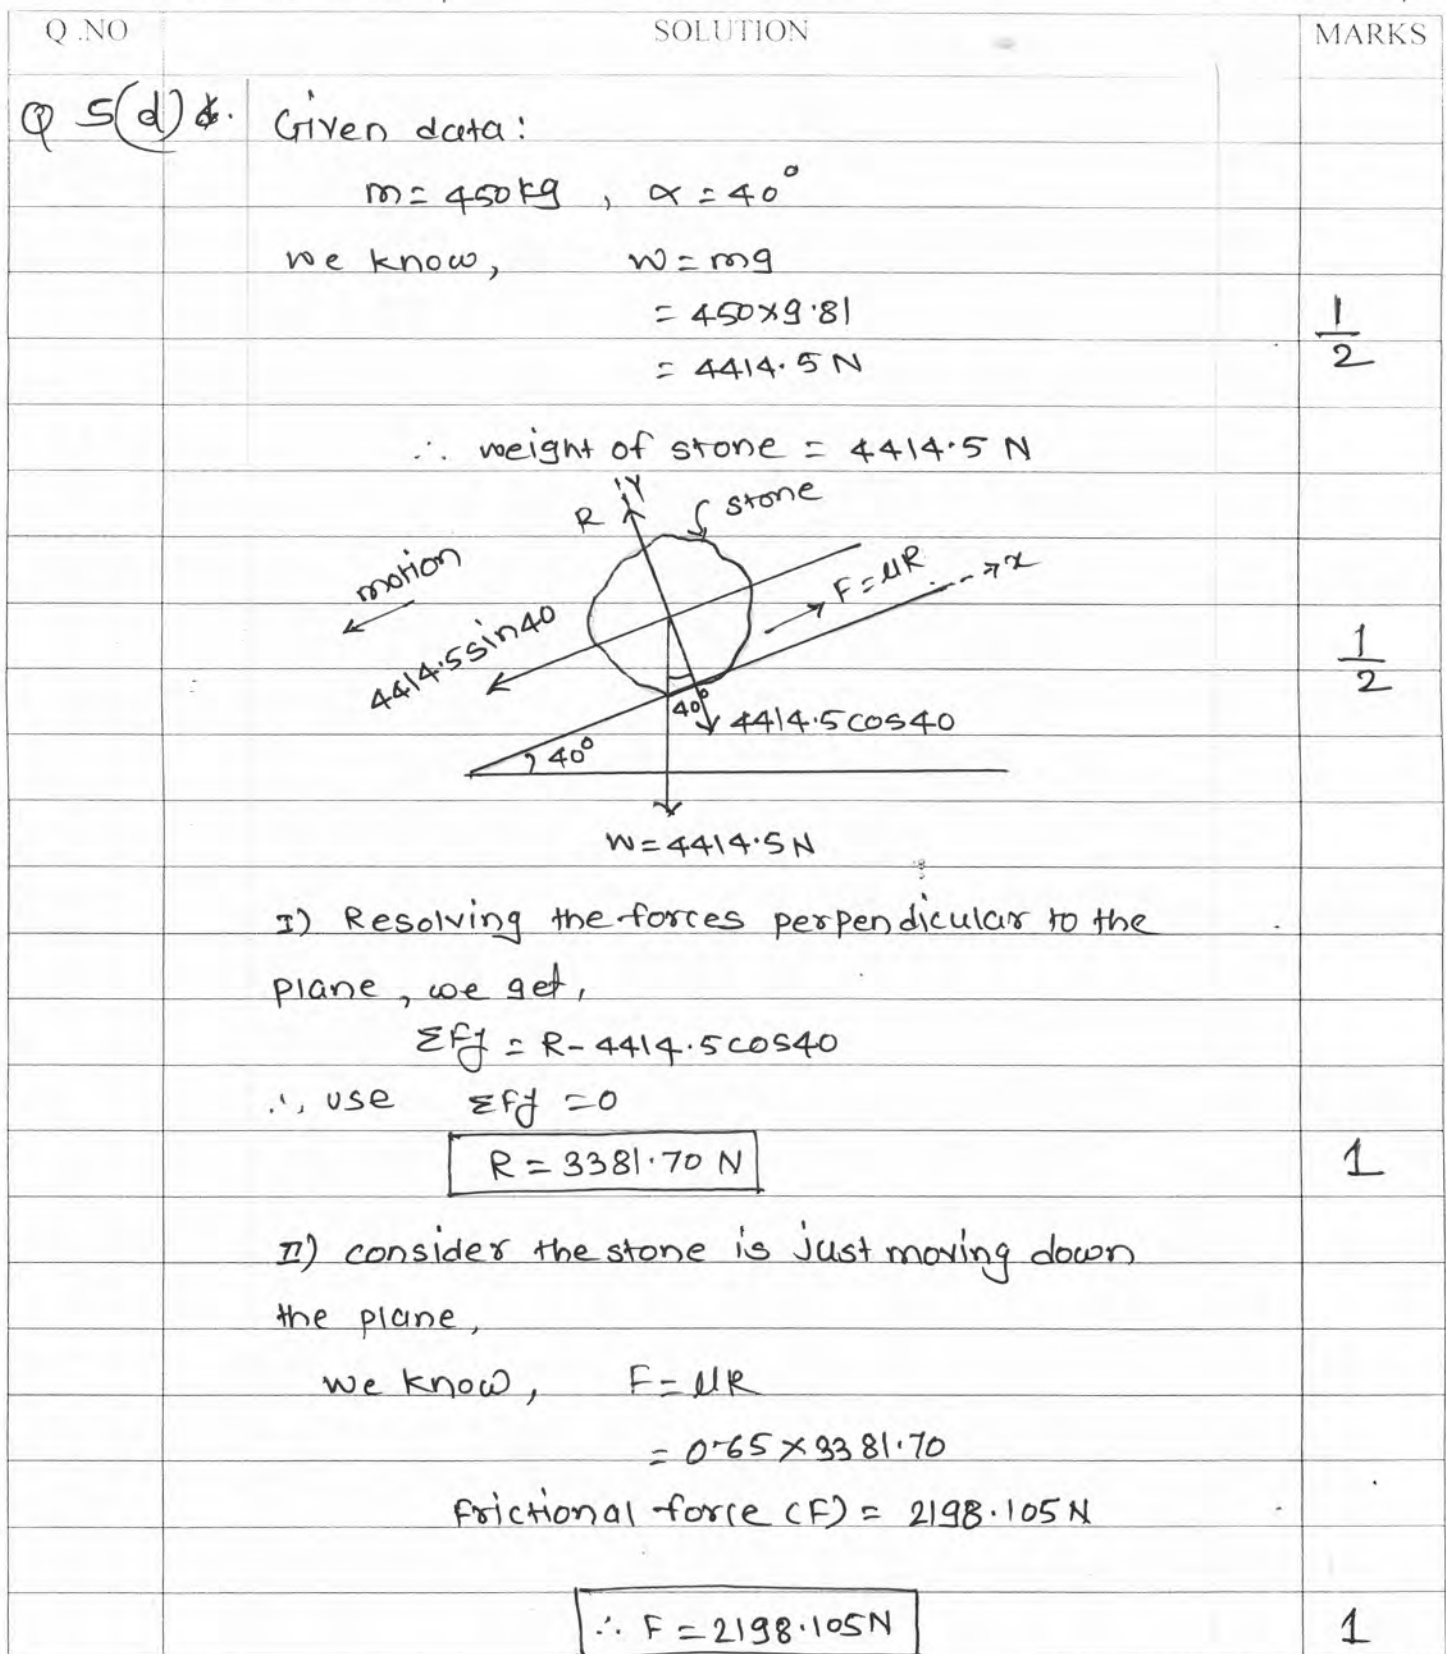 Q .NO SOLUTION MARKS
Q 5(d) Given data:
m = 450 kg , α = 40°
we know, w = mg
= 450×9.81
1/2
= 4414.5 N
∴ weight of stone = 4414.5 N
Y
R
stone
motion
F = μR
x
4414.5 sin40
1/2
40°
4414.5 cos40
40°
W = 4414.5 N
I) Resolving the forces perpendicular to the
plane, we get,
Σfy = R - 4414.5 cos40
∴, use Σfy = 0
R = 3381.70 N 1
II) consider the stone is just moving down
the plane,
we know, F = μR
= 0.65 × 3381.70
Frictional force (F) = 2198.105 N
∴ F = 2198.105N 1